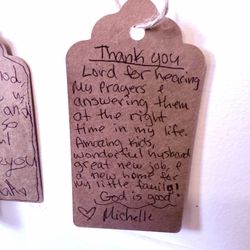 Thank you
Lord for hearing
My Prayers &
answering them
at the right
time in my life.
Amazing Kids,
wonderful husband
great new job, &
a new home for
my little family!
God is good!
♡ Michelle